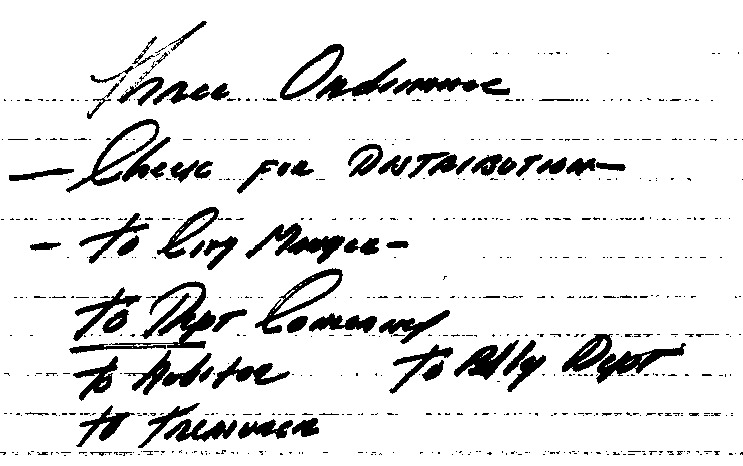 Three Ordinance
- Check for DISTRIBUTION -
- To City Manager -
To Dept Concerned
To Auditor To Bldg Dept
To Treasurer